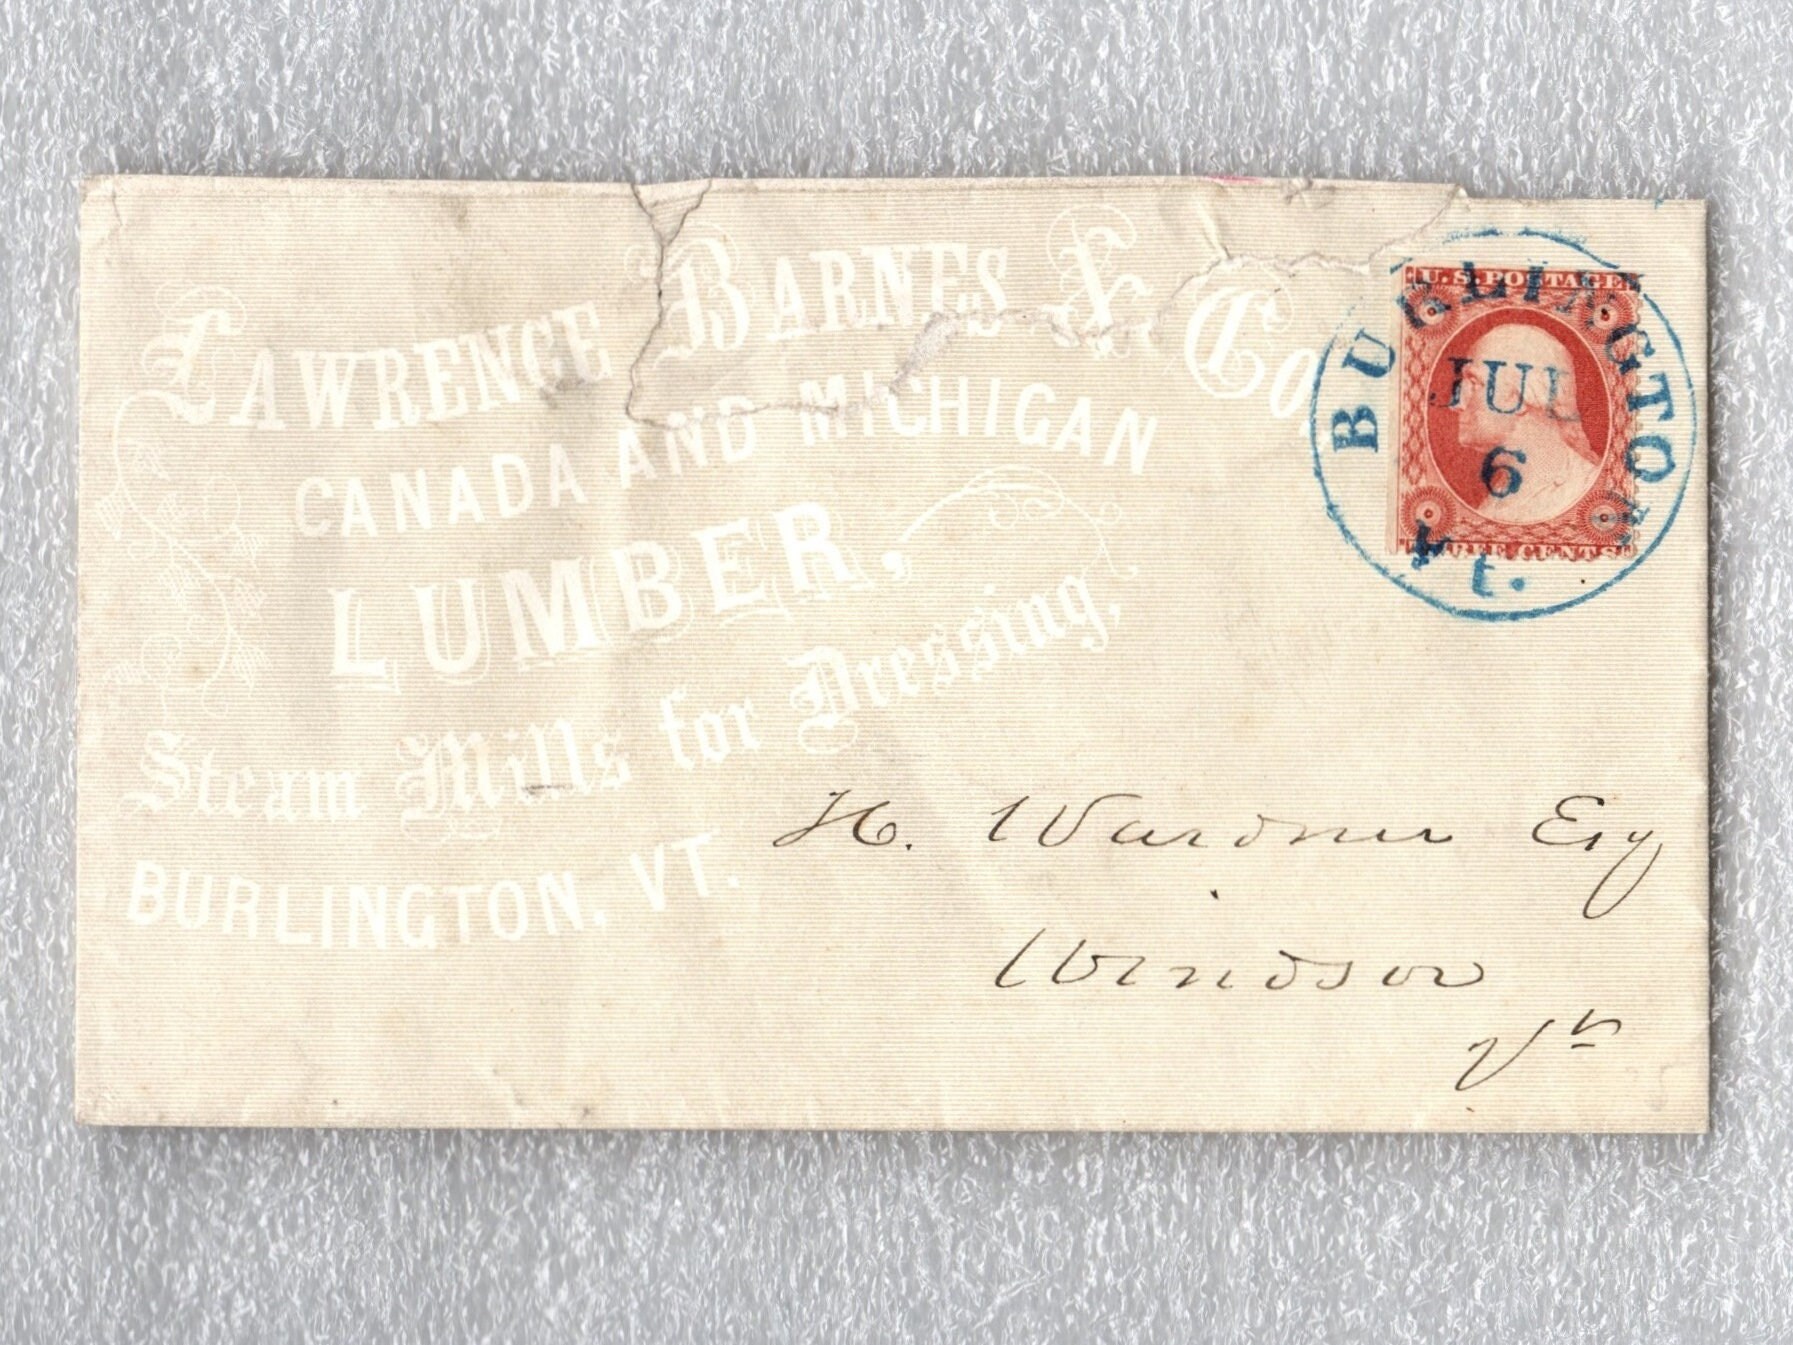 LAWRENCE BARNES & CO
CANADA AND MICHIGAN
LUMBER,
Steam Mills for Dressing,
BURLINGTON, VT.
U.S. POSTAGE
THREE CENTS
BURLINGTON
JUL
6
Vt.
H. Wardner Esq
Windsor
Vt